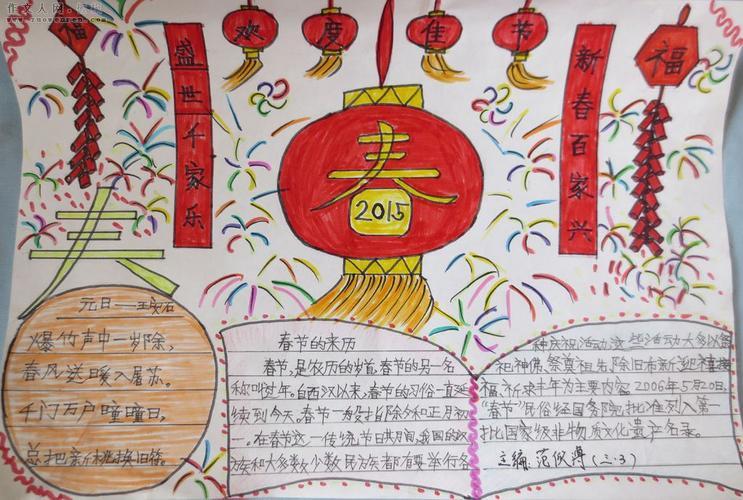 作文人网
www.zuowenren.com
福
欢度佳节
福
盛世千家乐
新春百家兴
春
2015
春
元日——王安石
爆竹声中一岁除，
春风送暖入屠苏。
千门万户曈曈日，
总把新桃换旧符。
春节的来历
春节，是农历的岁首，春节的另一名
称叫过年。自西汉以来，春节的习俗一直延
续到今天。春节一般指除夕和正月初
一。在春节这一传统节日其间，我国的汉
族和大多数少数民族都有要举行各
种庆祝活动，这些活动大多以祭
祀神佛、祭奠祖先、除旧布新、迎禧接
福、祈求丰年为主要内容。2006年5月20日，
“春节”民俗经国务院批准列入第一
批国家级非物质文化遗产名录。
主编：范仪（三.3）